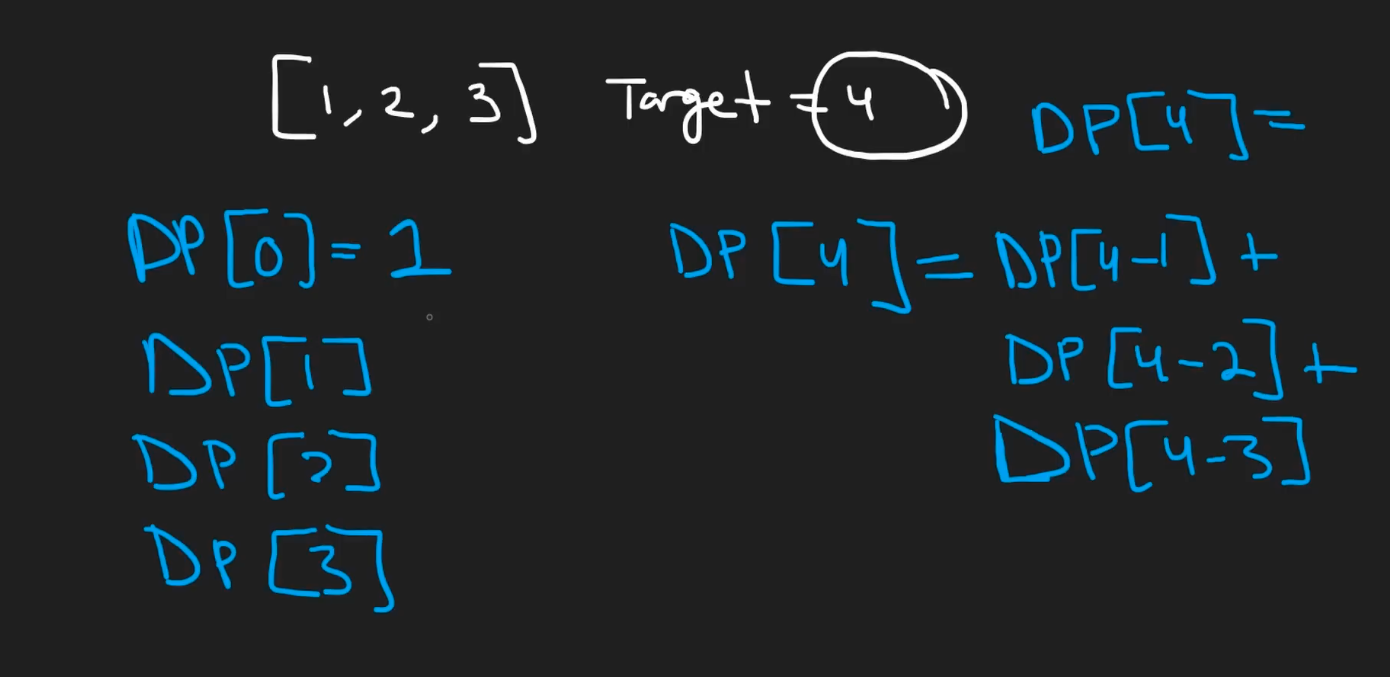 [1, 2, 3] Target = 4
DP[4] =
DP[0] = 1
DP[1]
DP[2]
DP[3]
DP[4] = DP[4-1] +
DP[4-2] +
DP[4-3]